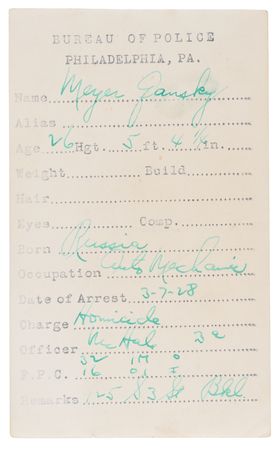 BUREAU OF POLICE
PHILADELPHIA, PA.
Name Meyer Gansky
Alias
Age 26 Hgt. 5 ft. 4 1/2 in.
Weight Build
Hair
Eyes Comp.
Born Russia
Occupation Auto Mechanic
Date of Arrest 3-7-28
Charge Homicide
Officer McHale
32 1M 0
F.P.C. 16 01 I
Remarks 125 S 3 St